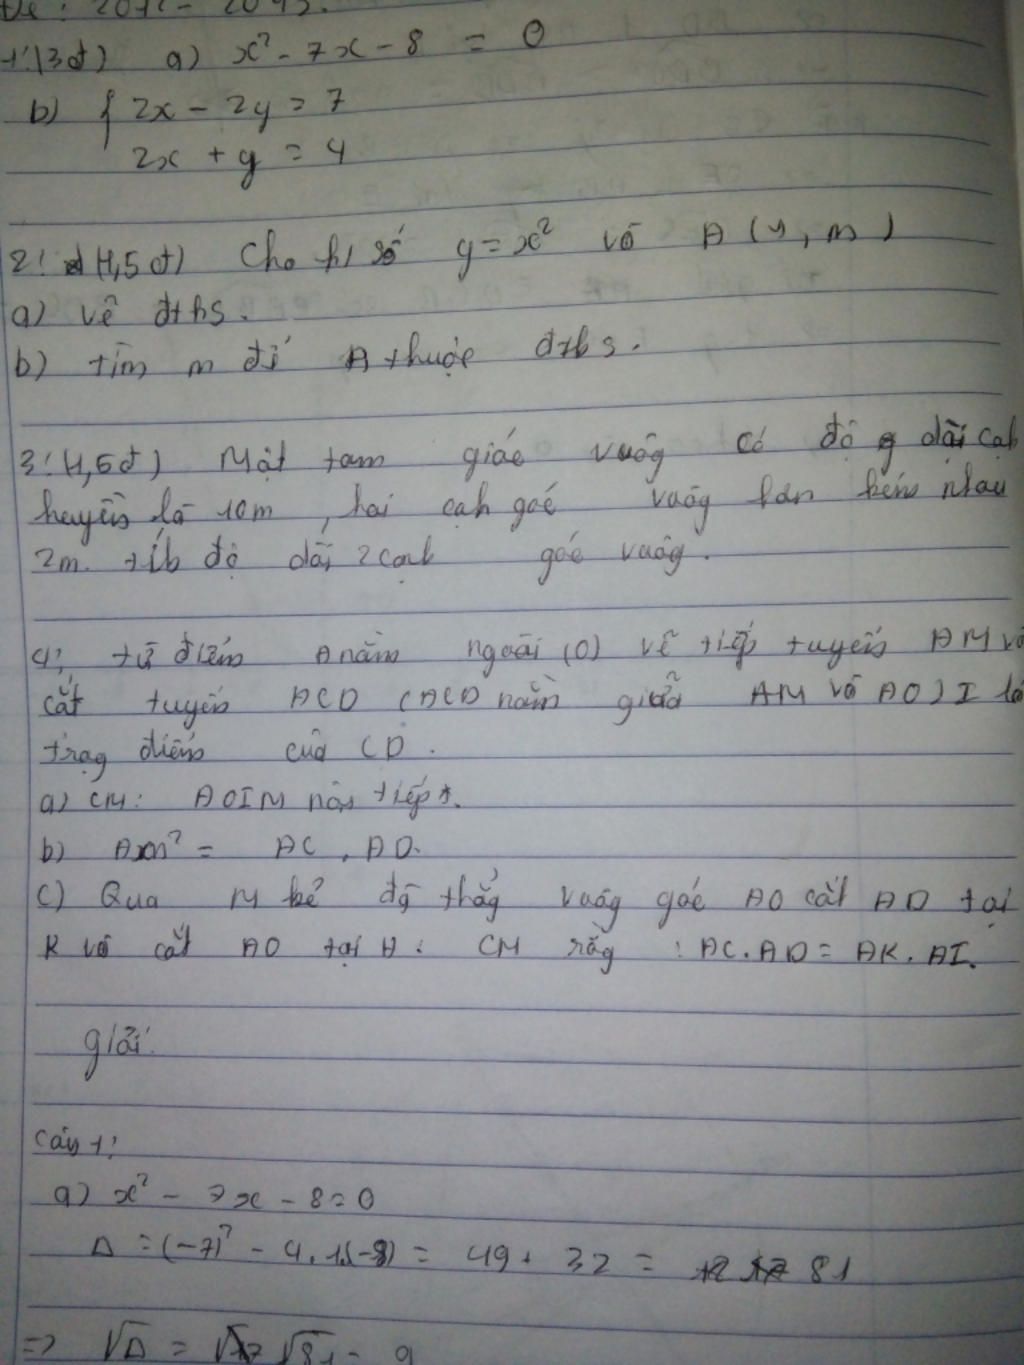 Đề : 2012 - 2013.
1: (3đ) a) x² - 7x - 8 = 0
b) { 2x - 2y = 7
2x + y = 4
2: (1,5đ) Cho h/số y = x² và A (4, m)
a) vẽ đths.
b) tìm m để A thuộc đths.
3: (1,5đ) Một tam giác vuôg có độ dài cạh
huyền là 10m, hai cạh góc vuôg hơn kém nhau
2m. tíh độ dài 2 cạh góc vuôg.
4: từ điểm A nằm ngoài (O) vẽ tiếp tuyến AM và
cát tuyến ACD (ACD nằm giữa AM và AO) I là
trug điểm của CD.
a) CM: AOIM nội tiếp.
b) AM² = AC . AD.
c) Qua M kẻ đg thẳg vuôg góc AO cắt AD tại
K và cắt AO tại H. CM rằg : AC.AD = AK.AI.
giải.
Câu 1:
a) x² - 7x - 8 = 0
Δ = (-7)² - 4.1.(-8) = 49 + 32 = 81
=> √Δ = √81 = 9